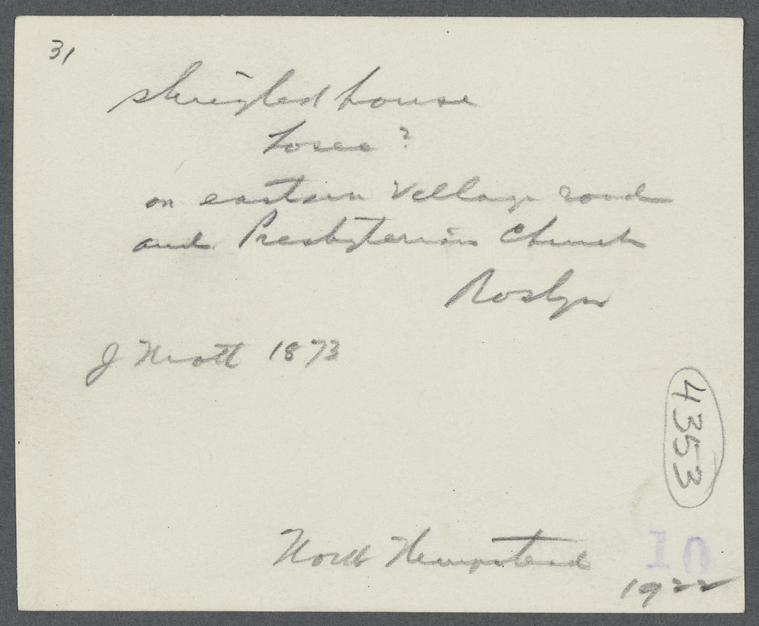 31
shingled house
Losee?
on eastern village road
and Presbyterian Church
Roslyn
J Mott 1873
4353
North Hempstead
10
1922